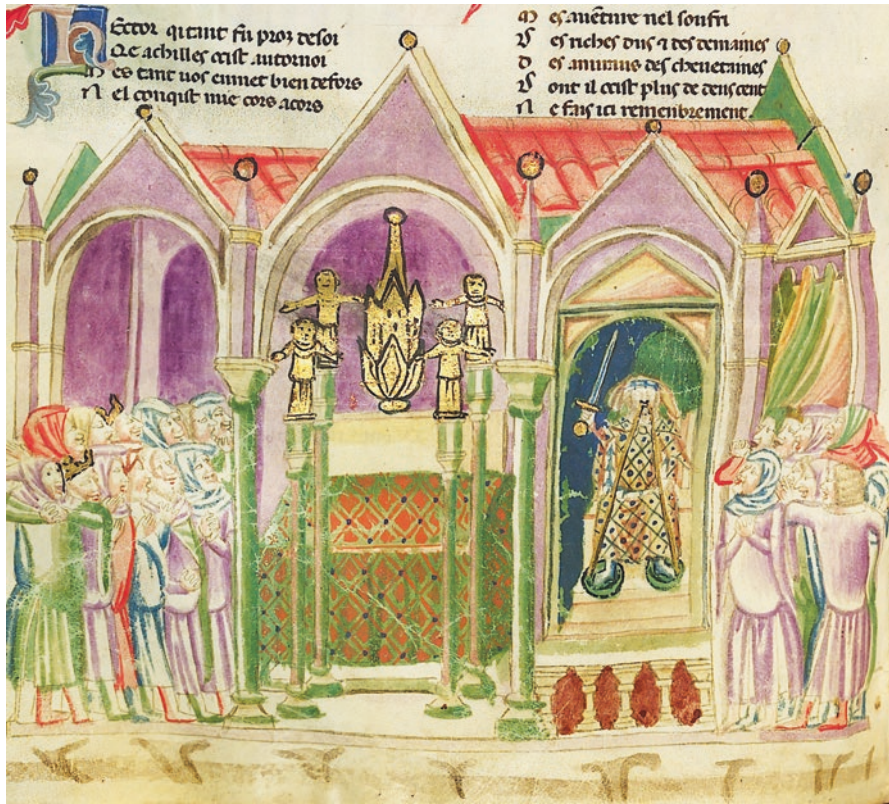 Hector qi tant fu proz de soi
Qe achilles ocist au tornoi
M es tant uos en met bien defors
N el conqist mie cors a cors
M es auenture nel soufri
D es riches dus ⁊ des demaines
D es amiraus des cheuetaines
D ont il ocist plus de deus cent
N e fais ici remenbrement.